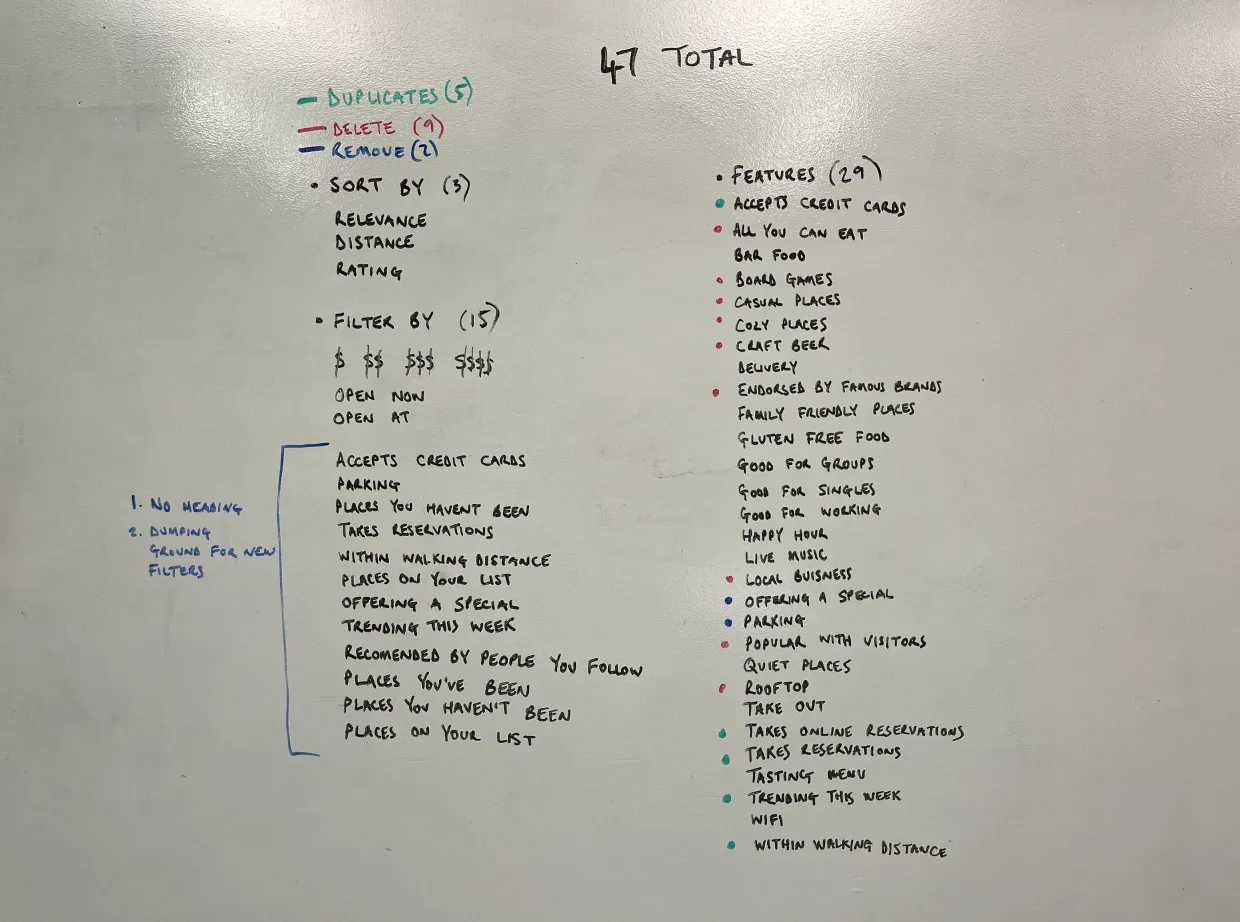 47 TOTAL
DUPLICATES (5)
DELETE (9)
REMOVE (2)
• SORT BY (3)
RELEVANCE
DISTANCE
RATING
• FILTER BY (15)
$ $$ $$$ $$$$
OPEN NOW
OPEN AT
1. NO HEADING
2. DUMPING
GROUND FOR NEW
FILTERS
ACCEPTS CREDIT CARDS
PARKING
PLACES YOU HAVENT BEEN
TAKES RESERVATIONS
WITHIN WALKING DISTANCE
PLACES ON YOUR LIST
OFFERING A SPECIAL
TRENDING THIS WEEK
RECOMENDED BY PEOPLE YOU FOLLOW
PLACES YOU'VE BEEN
PLACES YOU HAVEN'T BEEN
PLACES ON YOUR LIST
• FEATURES (29)
• ACCEPTS CREDIT CARDS
• ALL YOU CAN EAT
BAR FOOD
• BOARD GAMES
• CASUAL PLACES
• COZY PLACES
• CRAFT BEER
DELIVERY
• ENDORSED BY FAMOUS BRANDS
FAMILY FRIENDLY PLACES
GLUTEN FREE FOOD
GOOD FOR GROUPS
GOOD FOR SINGLES
GOOD FOR WORKING
HAPPY HOUR
LIVE MUSIC
• LOCAL BUISNESS
• OFFERING A SPECIAL
• PARKING
• POPULAR WITH VISITORS
QUIET PLACES
• ROOFTOP
TAKE OUT
• TAKES ONLINE RESERVATIONS
• TAKES RESERVATIONS
TASTING MENU
• TRENDING THIS WEEK
WIFI
• WITHIN WALKING DISTANCE